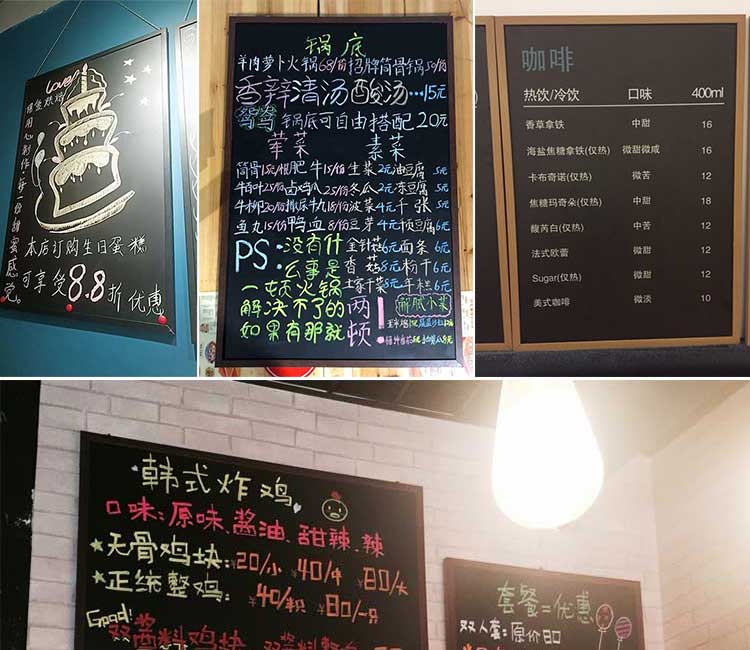 Love
烘焙
用心制作·每一份甜蜜感觉。
本店订购生日蛋糕
可享受8.8折优惠
锅底
羊肉萝卜火锅68/份招牌筒骨锅50/份
香辣清汤酸汤…15元
鸳鸯锅底可自由搭配20元
荤菜 素菜
生菜2元油豆腐5元
牛百叶25/份 冬瓜2元冻豆腐5元
菠菜4元千张5元
鱼丸15/份鸭血8/份豆芽4元
PS:没有什 金针菇6元面条6元
么事是 香菇8元粉干6元
一顿火锅 年糕6元
解决不了的两 解腻小菜
如果有那就顿!
咖啡
热饮/冷饮 口味 400ml
香草拿铁 中甜 16
海盐焦糖拿铁(仅热) 微甜微咸 16
卡布奇诺(仅热) 微苦 12
焦糖玛奇朵(仅热) 中甜 18
馥芮白(仅热) 中苦 12
法式欧蕾 微甜 12
Sugar(仅热) 微甜 12
美式咖啡 微淡 10
韩式炸鸡
口味:原味、酱油、甜辣、辣
★无骨鸡块:¥20/小 ¥40/中 ¥80/大
★正统整鸡: ¥40/半只 ¥80/一只
Good!
双酱料鸡块
套餐=优惠
双人套:原价80